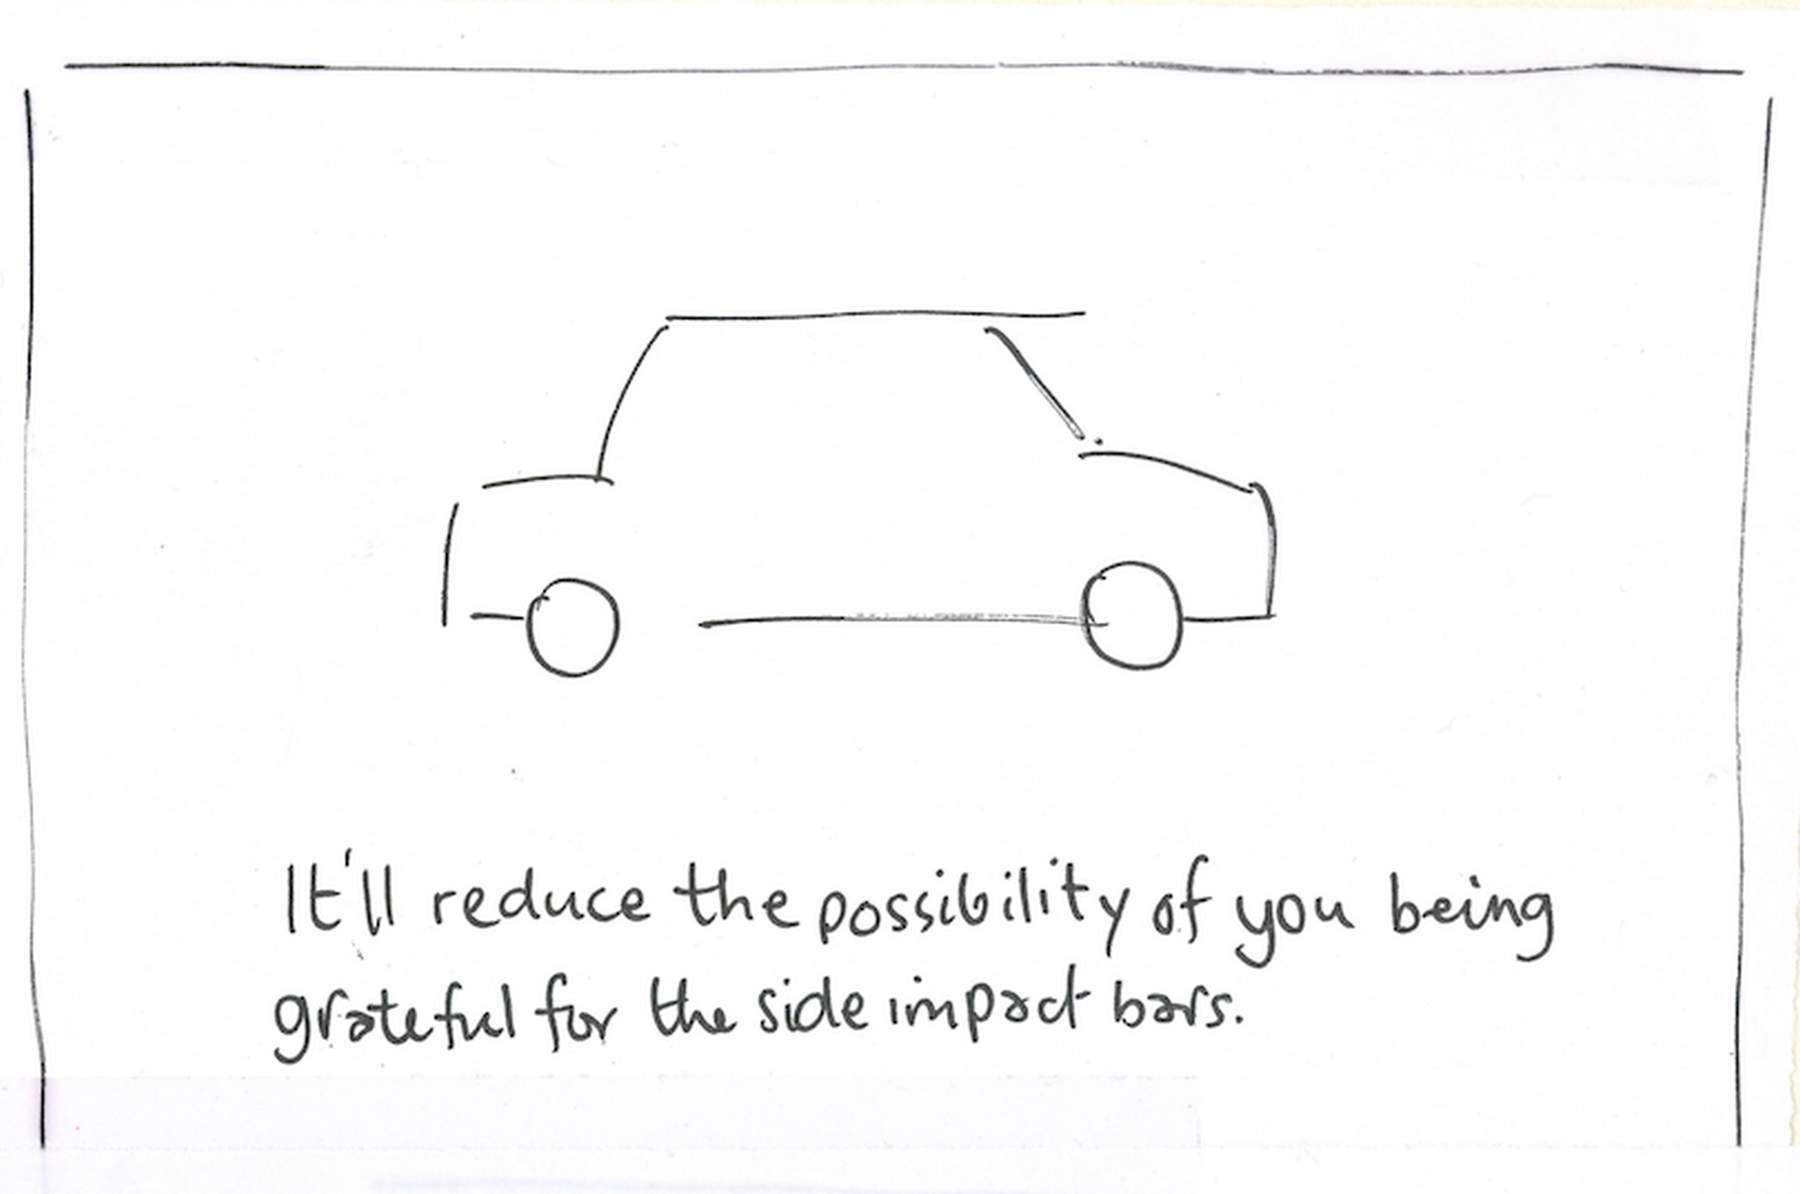 It'll reduce the possibility of you being
grateful for the side impact bars.